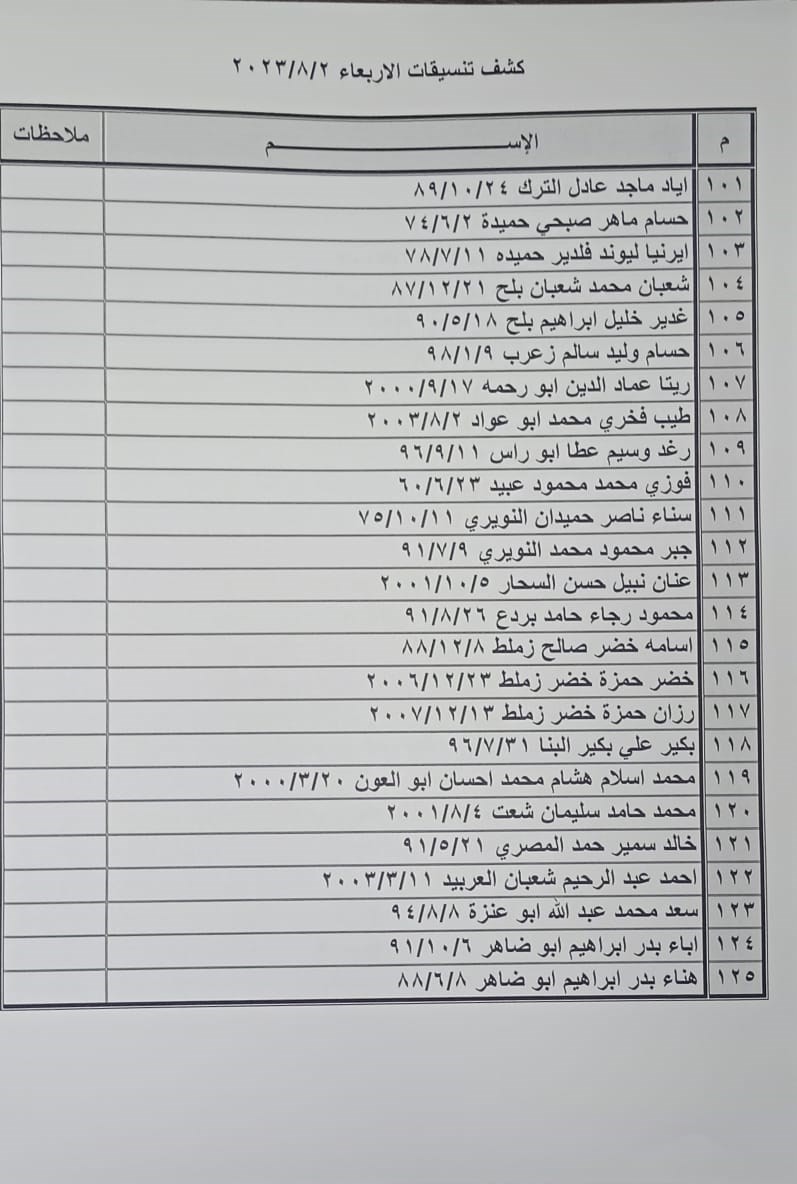 كشف تنسيقات الاربعاء ٢٠٢٣/٨/٢
م الإســـــــــــــــــــم ملاحظات
١٠١ اياد ماجد عادل الترك ٨٩/١٠/٢٤
١٠٢ حسام ماهر صبحي حميدة ٧٤/٦/٢
١٠٣ ايرنيا ليوند فلدير حميده ٧٨/٧/١١
١٠٤ شعبان محمد شعبان بلح ٨٧/١٢/٢١
١٠٥ غدير خليل ابراهيم بلح ٩٠/٥/١٨
١٠٦ حسام وليد سالم زعرب ٩٨/١/٩
١٠٧ ريتا عماد الدين ابو رحمه ٢٠٠٠/٩/١٧
١٠٨ طيب فخري محمد ابو عواد ٢٠٠٣/٨/٢
١٠٩ رغد وسيم عطا ابو راس ٩٦/٩/١١
١١٠ فوزي محمد محمود عبيد ٦٠/٦/٢٣
١١١ سناء ناصر حميدان النويري ٧٥/١٠/١١
١١٢ جبر محمود محمد النويري ٩١/٧/٩
١١٣ عنان نبيل حسن السحار ٢٠٠١/١٠/٥
١١٤ محمود رجاء حامد بردع ٩١/٨/٢٦
١١٥ اسامه خضر صالح زملط ٨٨/١٢/٨
١١٦ خضر حمزة خضر زملط ٢٠٠٦/١٢/٢٣
١١٧ رزان حمزة خضر زملط ٢٠٠٧/١٢/١٣
١١٨ بكير علي بكير البنا ٩٦/٧/٣١
١١٩ محمد اسلام هشام محمد احسان ابو العون ٢٠٠٠/٣/٢٠
١٢٠ محمد حامد سليمان شعت ٢٠٠١/٨/٤
١٢١ خالد سمير حمد المصري ٩١/٥/٢١
١٢٢ احمد عبد الرحيم شعبان العربيد ٢٠٠٣/٣/١١
١٢٣ سعد محمد عبد الله ابو عنزة ٩٤/٨/٨
١٢٤ اباء بدر ابراهيم ابو ضاهر ٩١/١٠/٦
١٢٥ هناء بدر ابراهيم ابو ضاهر ٨٨/٦/٨